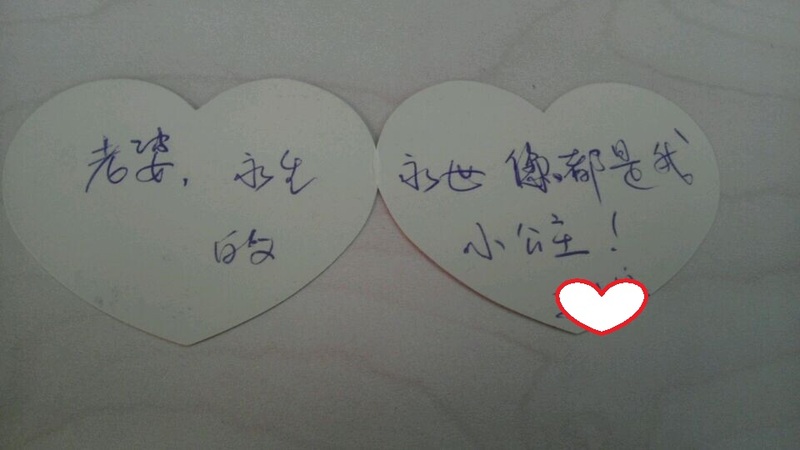 老婆，永生永世你都是我
的小公主！